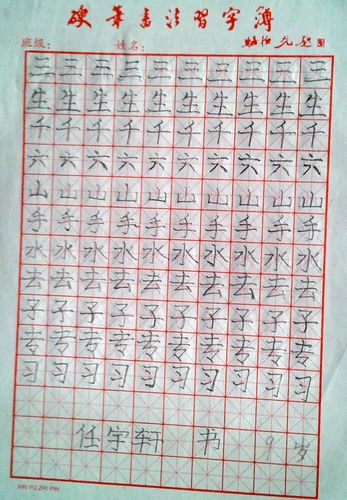 硬筆書法習字簿
班级： 姓名：
三三三三三三三三三三
生生生生生生生生生生
千千千千千千千千千千
六六六六六六六六六六
山山山山山山山山山山
手手手手手手手手手手
水水水水水水水水水水
去去去去去去去去去去
子子子子子子子子子子
专专专专专专专专专专
习习习习习习习习习习
任宇轩 书 9 岁